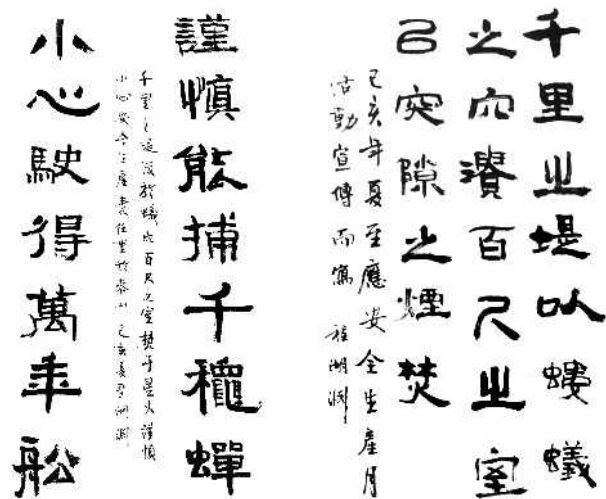 千里之堤以螻蟻
之穴潰百尺之室
㠯突隙之煙焚
己亥年夏至應安全生產月
活動宣傳而寫 程湖淵
謹慎能捕千穐蟬
千里之堤潰於蟻穴百尺之室焚于星火謹慎
小心安全生產責任重於泰山 己亥夏 湖淵
小心駛得萬年船